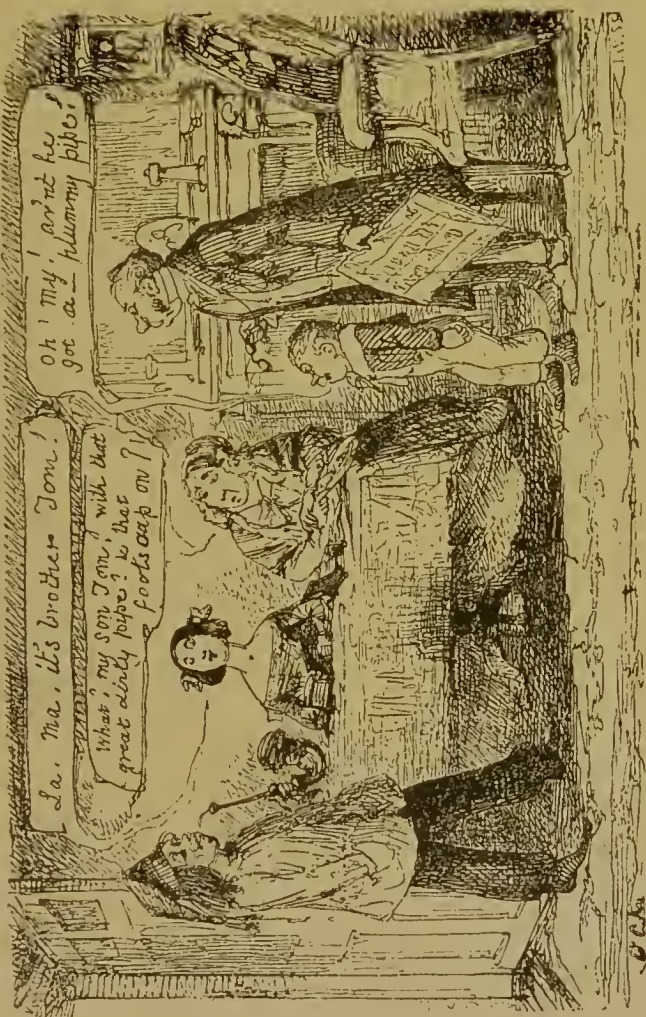 La, Ma, it's brother Tom!
What, my son Tom, with that
great dirty pipe? & that
fools cap on!
Oh! my! ar'nt he
got a plummy pipe!